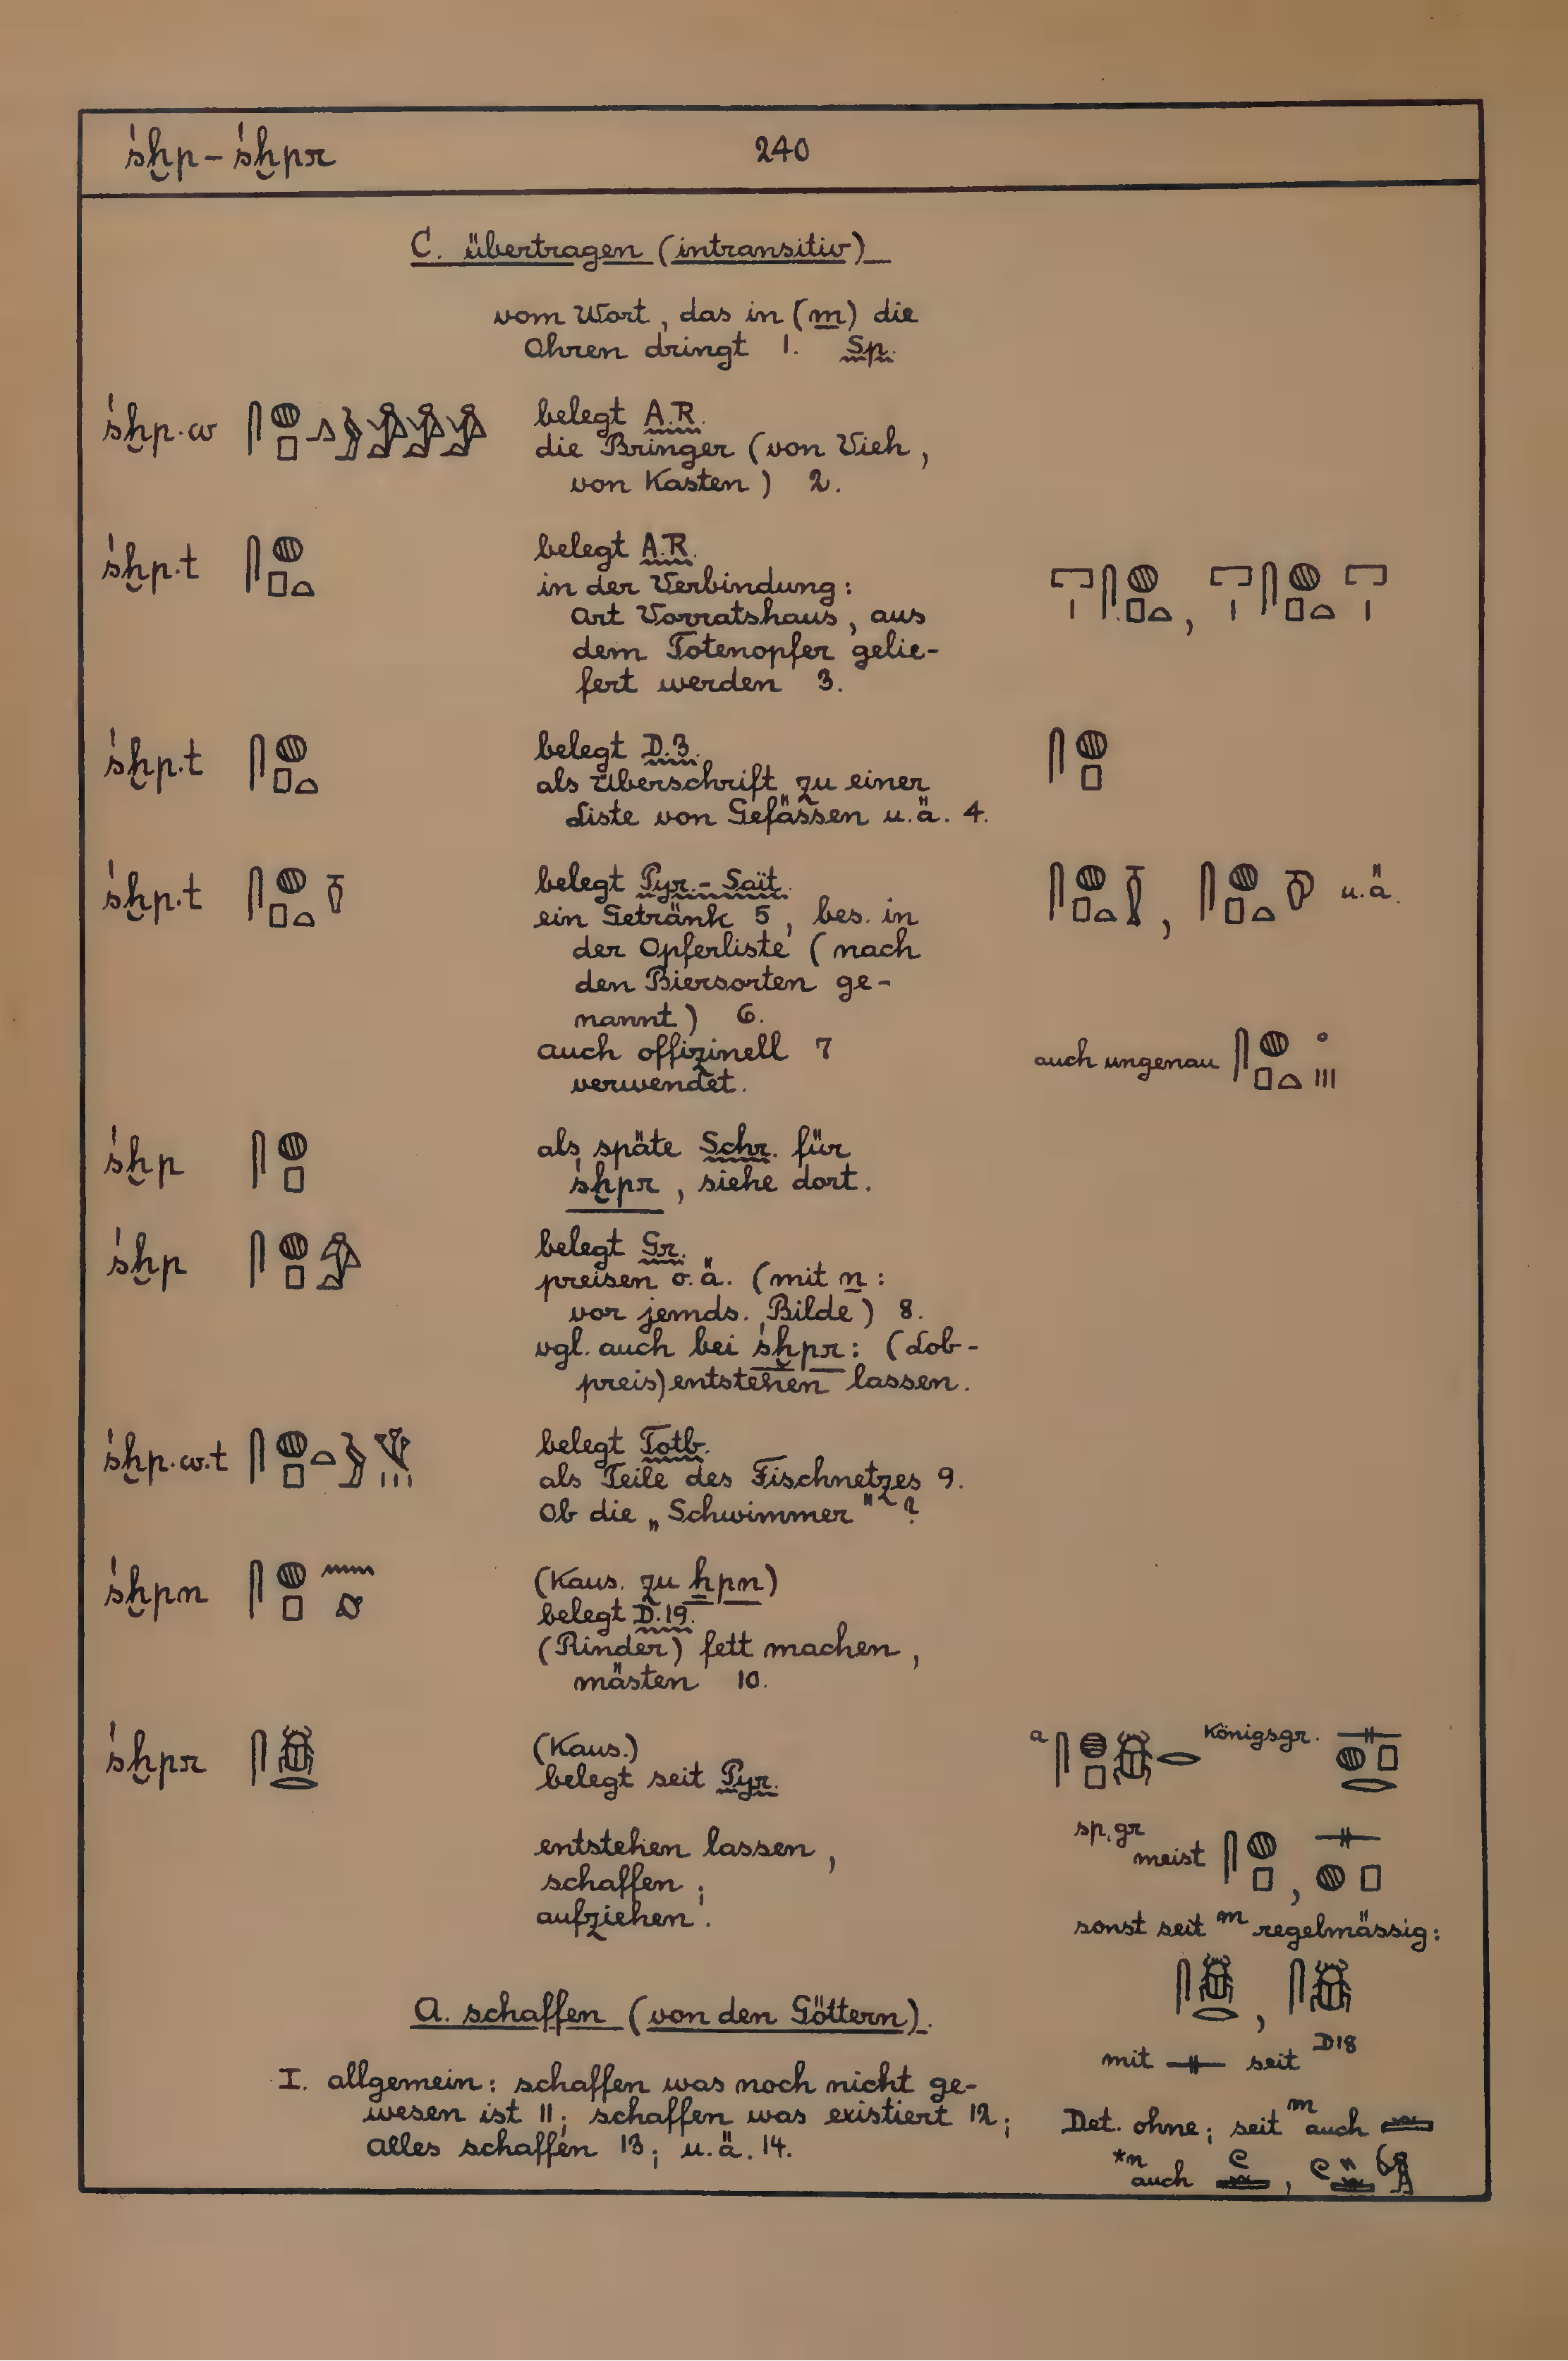 śḫp – śḫpr 240
C. übertragen (intransitiv)
vom Wort, das in (m) die
Ohren dringt 1. Sp.
śḫp.w
belegt A.R.
die Bringer (von Vieh,
von Kasten) 2.
śḫp.t
belegt A.R.
in der Verbindung:
Art Vorratshaus, aus
dem Totenopfer gelie-
fert werden 3.
śḫp.t
belegt D.3.
als Überschrift zu einer
Liste von Gefässen u.ä. 4.
śḫp.t
belegt Pyr. - Saït.
u.ä.
ein Getränk 5, bes. in
der Opferliste (nach
den Biersorten ge-
nannt) 6.
auch offizinell 7
verwendet.
auch ungenau
śḫp
als späte Schr. für
śḫpr, siehe dort.
śḫp
belegt Gr.
preisen o.ä. (mit n:
vor jemds. Bilde) 8.
vgl. auch bei śḫpr: (Lob-
preis) entstehen lassen.
śḫp.w.t
belegt Totb.
als Teile des Fischnetzes 9.
Ob die „Schwimmer"?
śḫpn
(Kaus. zu ẖpn)
belegt D.19.
(Rinder) fett machen,
mästen 10.
śḫpr
(Kaus.)
belegt seit Pyr.
entstehen lassen,
schaffen;
aufziehen.
a Königsgr.
sp. gr
meist
sonst seit m regelmässig:
mit seit D18
Det. ohne; seit m auch
*n auch
A. schaffen (von den Göttern).
I. allgemein: schaffen was noch nicht ge-
wesen ist 11; schaffen was existiert 12;
alles schaffen 13; u.ä. 14.